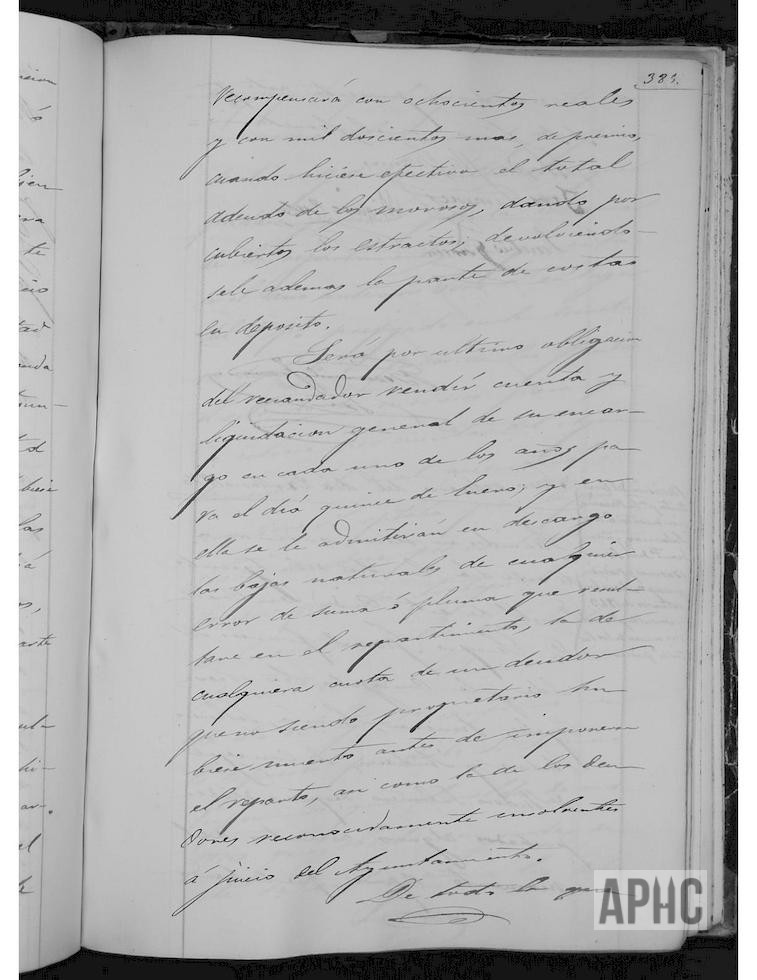 381.
recompensará con ochocientos reales
y con mil doscientos mas, de premio,
cuando hiciése efectivo el total
adeudo de los morosos, dando por
cubiertos los estractos; devolviendo-
sele ademas la parte de costas
en deposito.
Será por ultimo obligacion
del recaudador rendir cuenta y
liquidacion general de su encar-
go en cada uno de los años, pa-
ra el dia quince de Enero; y en
ella se le admitirán en descargo
las bajas naturales de cualquier
error de suma ó pluma que resul-
tare en el repartimiento, la de
cualquiera cuota de un deudor
que no siendo propietario hu-
biese muerto antes de imponerse
el reparto, asi como la de los deu-
dores reconocidamente insolventes
á juicio del Ayuntamiento.
De todo lo que
APHC